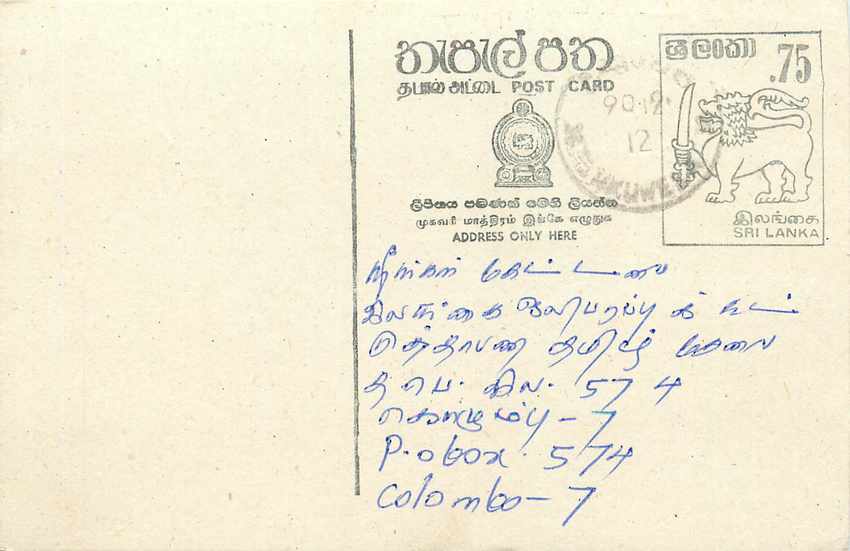 තැපැල් පත
தபால் அட்டை POST CARD
ලිපිනය පමණක් මෙහි ලියන්න
முகவரி மாத்திரம் இங்கே எழுதுக
ADDRESS ONLY HERE
ශ්‍රී ලංකා
.75
இலங்கை
SRI LANKA
90.12.
12
நீங்கள் கேட்டவை
இலங்கை ஒலிபரப்புக் கூட்
டுத்தாபன தமிழ் சேவை
த. பெ. இல. 574
கொழும்பு - 7
P.o box. 574
Colombo - 7